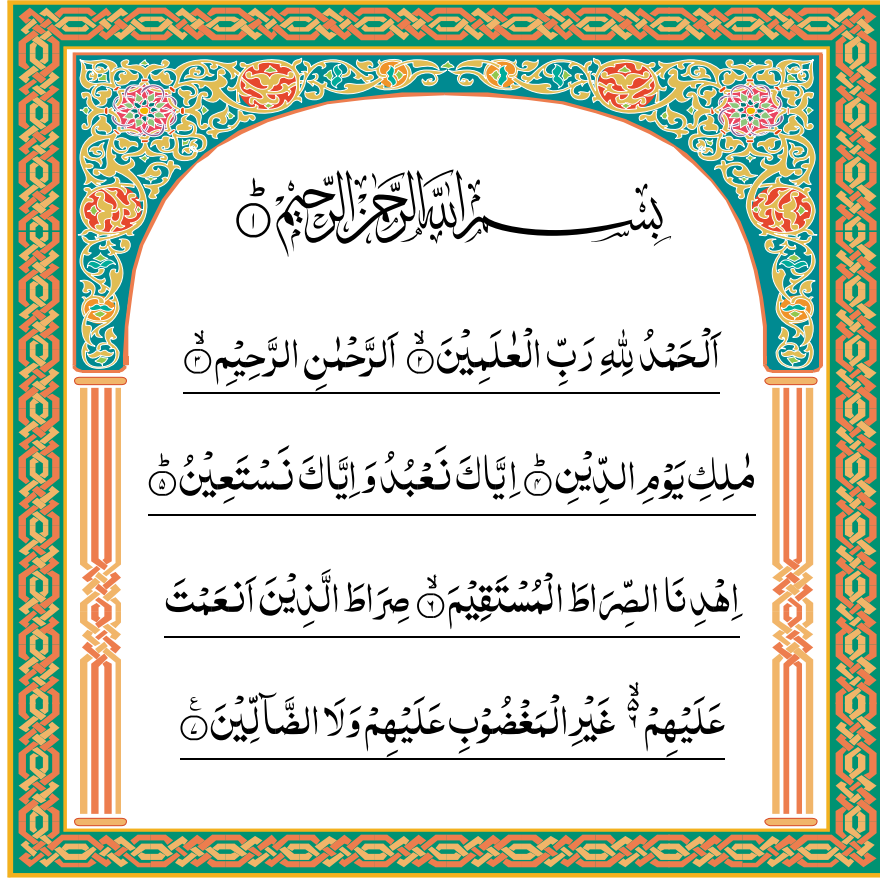 بِسْمِ اللّٰهِ الرَّحْمٰنِ الرَّحِيْمِ ؕ۝۱
اَلْحَمْدُ لِلّٰهِ رَبِّ الْعٰلَمِيْنَ ۙ۝۲ الرَّحْمٰنِ الرَّحِيْمِ ۙ۝۳
مٰلِكِ يَوْمِ الدِّيْنِ ؕ۝۴ اِيَّاكَ نَعْبُدُ وَ اِيَّاكَ نَسْتَعِيْنُ ؕ۝۵
اِهْدِنَا الصِّرَاطَ الْمُسْتَقِيْمَ ۙ۝۶ صِرَاطَ الَّذِيْنَ اَنْعَمْتَ
عَلَيْهِمْ ۙ۬ۦ غَيْرِ الْمَغْضُوْبِ عَلَيْهِمْ وَلَا الضَّآلِّيْنَ ۠۝۷